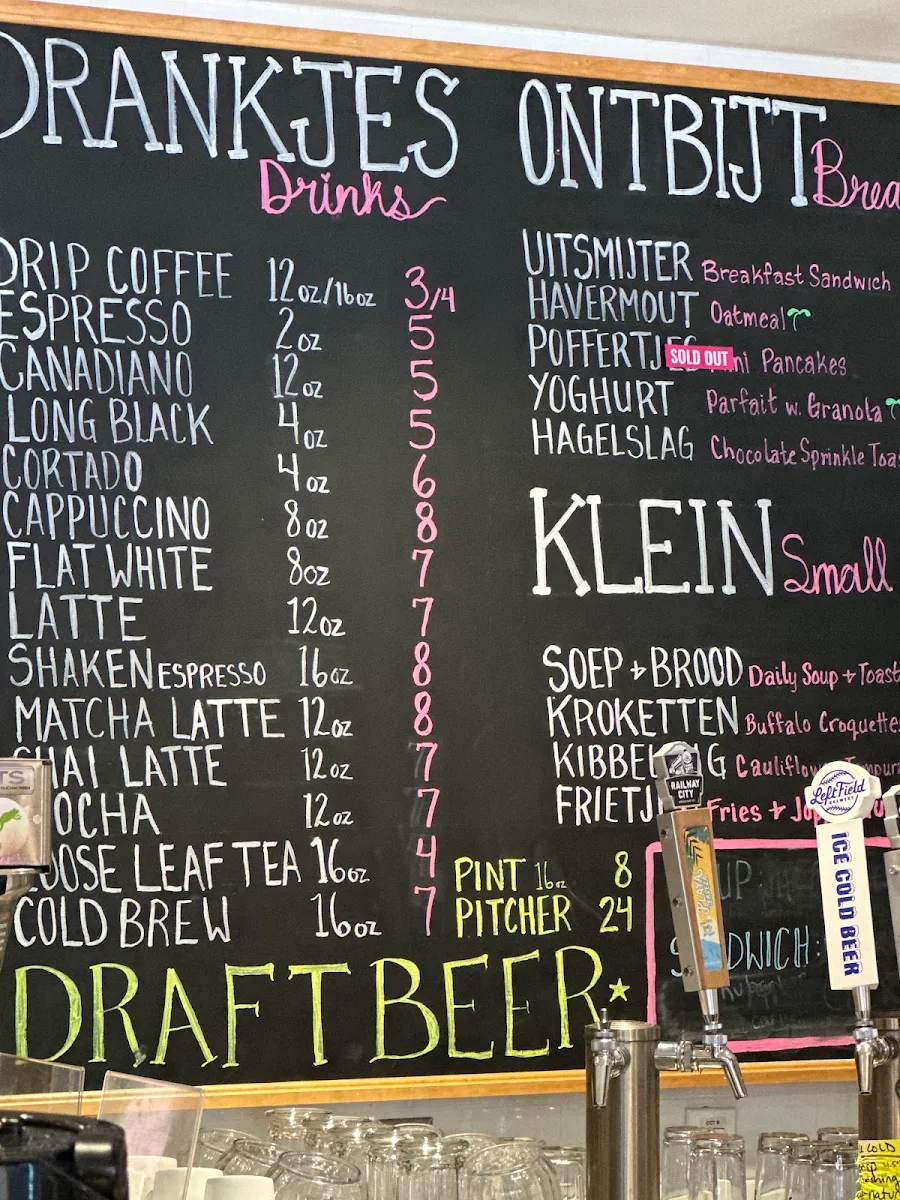 DRANKJES
Drinks
DRIP COFFEE 12oz/16oz 3/4
ESPRESSO 2oz 5
CANADIANO 12oz 5
LONG BLACK 4oz 5
CORTADO 4oz 6
CAPPUCCINO 8oz 8
FLAT WHITE 8oz 7
LATTE 12oz 7
SHAKEN ESPRESSO 16oz 8
MATCHA LATTE 12oz 8
CHAI LATTE 12oz 7
MOCHA 12oz 7
LOOSE LEAF TEA 16oz 4
COLD BREW 16oz 7
PINT 16oz 8
PITCHER 24
DRAFT BEER
ONTBIJT Brea
UITSMIJTER Breakfast Sandwich
HAVERMOUT Oatmeal
POFFERTJES SOLD OUT Pancakes
YOGHURT Parfait w. Granola
HAGELSLAG Chocolate Sprinkle Toas
KLEIN Small
SOEP + BROOD Daily Soup + Toast
KROKETTEN Buffalo Croquettes
KIBBEL G Cauliflow Tempura
FRIETJ Fries +
RAILWAY CITY
LeftField
BREWERY
ICE COLD BEER